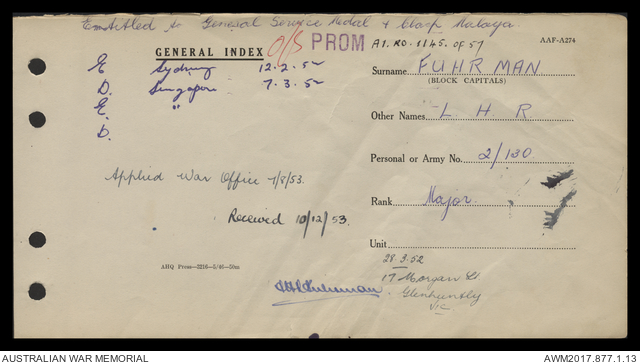 Entitled to General Service Medal & Clasp Malaya.
GENERAL INDEX O/S PROM A1. RO. 1145. of 57 AAF-A274
E Sydney 12.2.52
D. Singapore 7.3.52
E "
D.
Surname FUHRMAN
(BLOCK CAPITALS)
Other Names L H R
Personal or Army No. 2/130
Rank Major
Unit
Applied War Office 1/8/53.
Received 10/12/53.
AHQ Press—3216—5/46—50m
28.3.52
17 Morgan St.
Glenhuntly
VIC
AUSTRALIAN WAR MEMORIAL
AWM2017.877.1.13